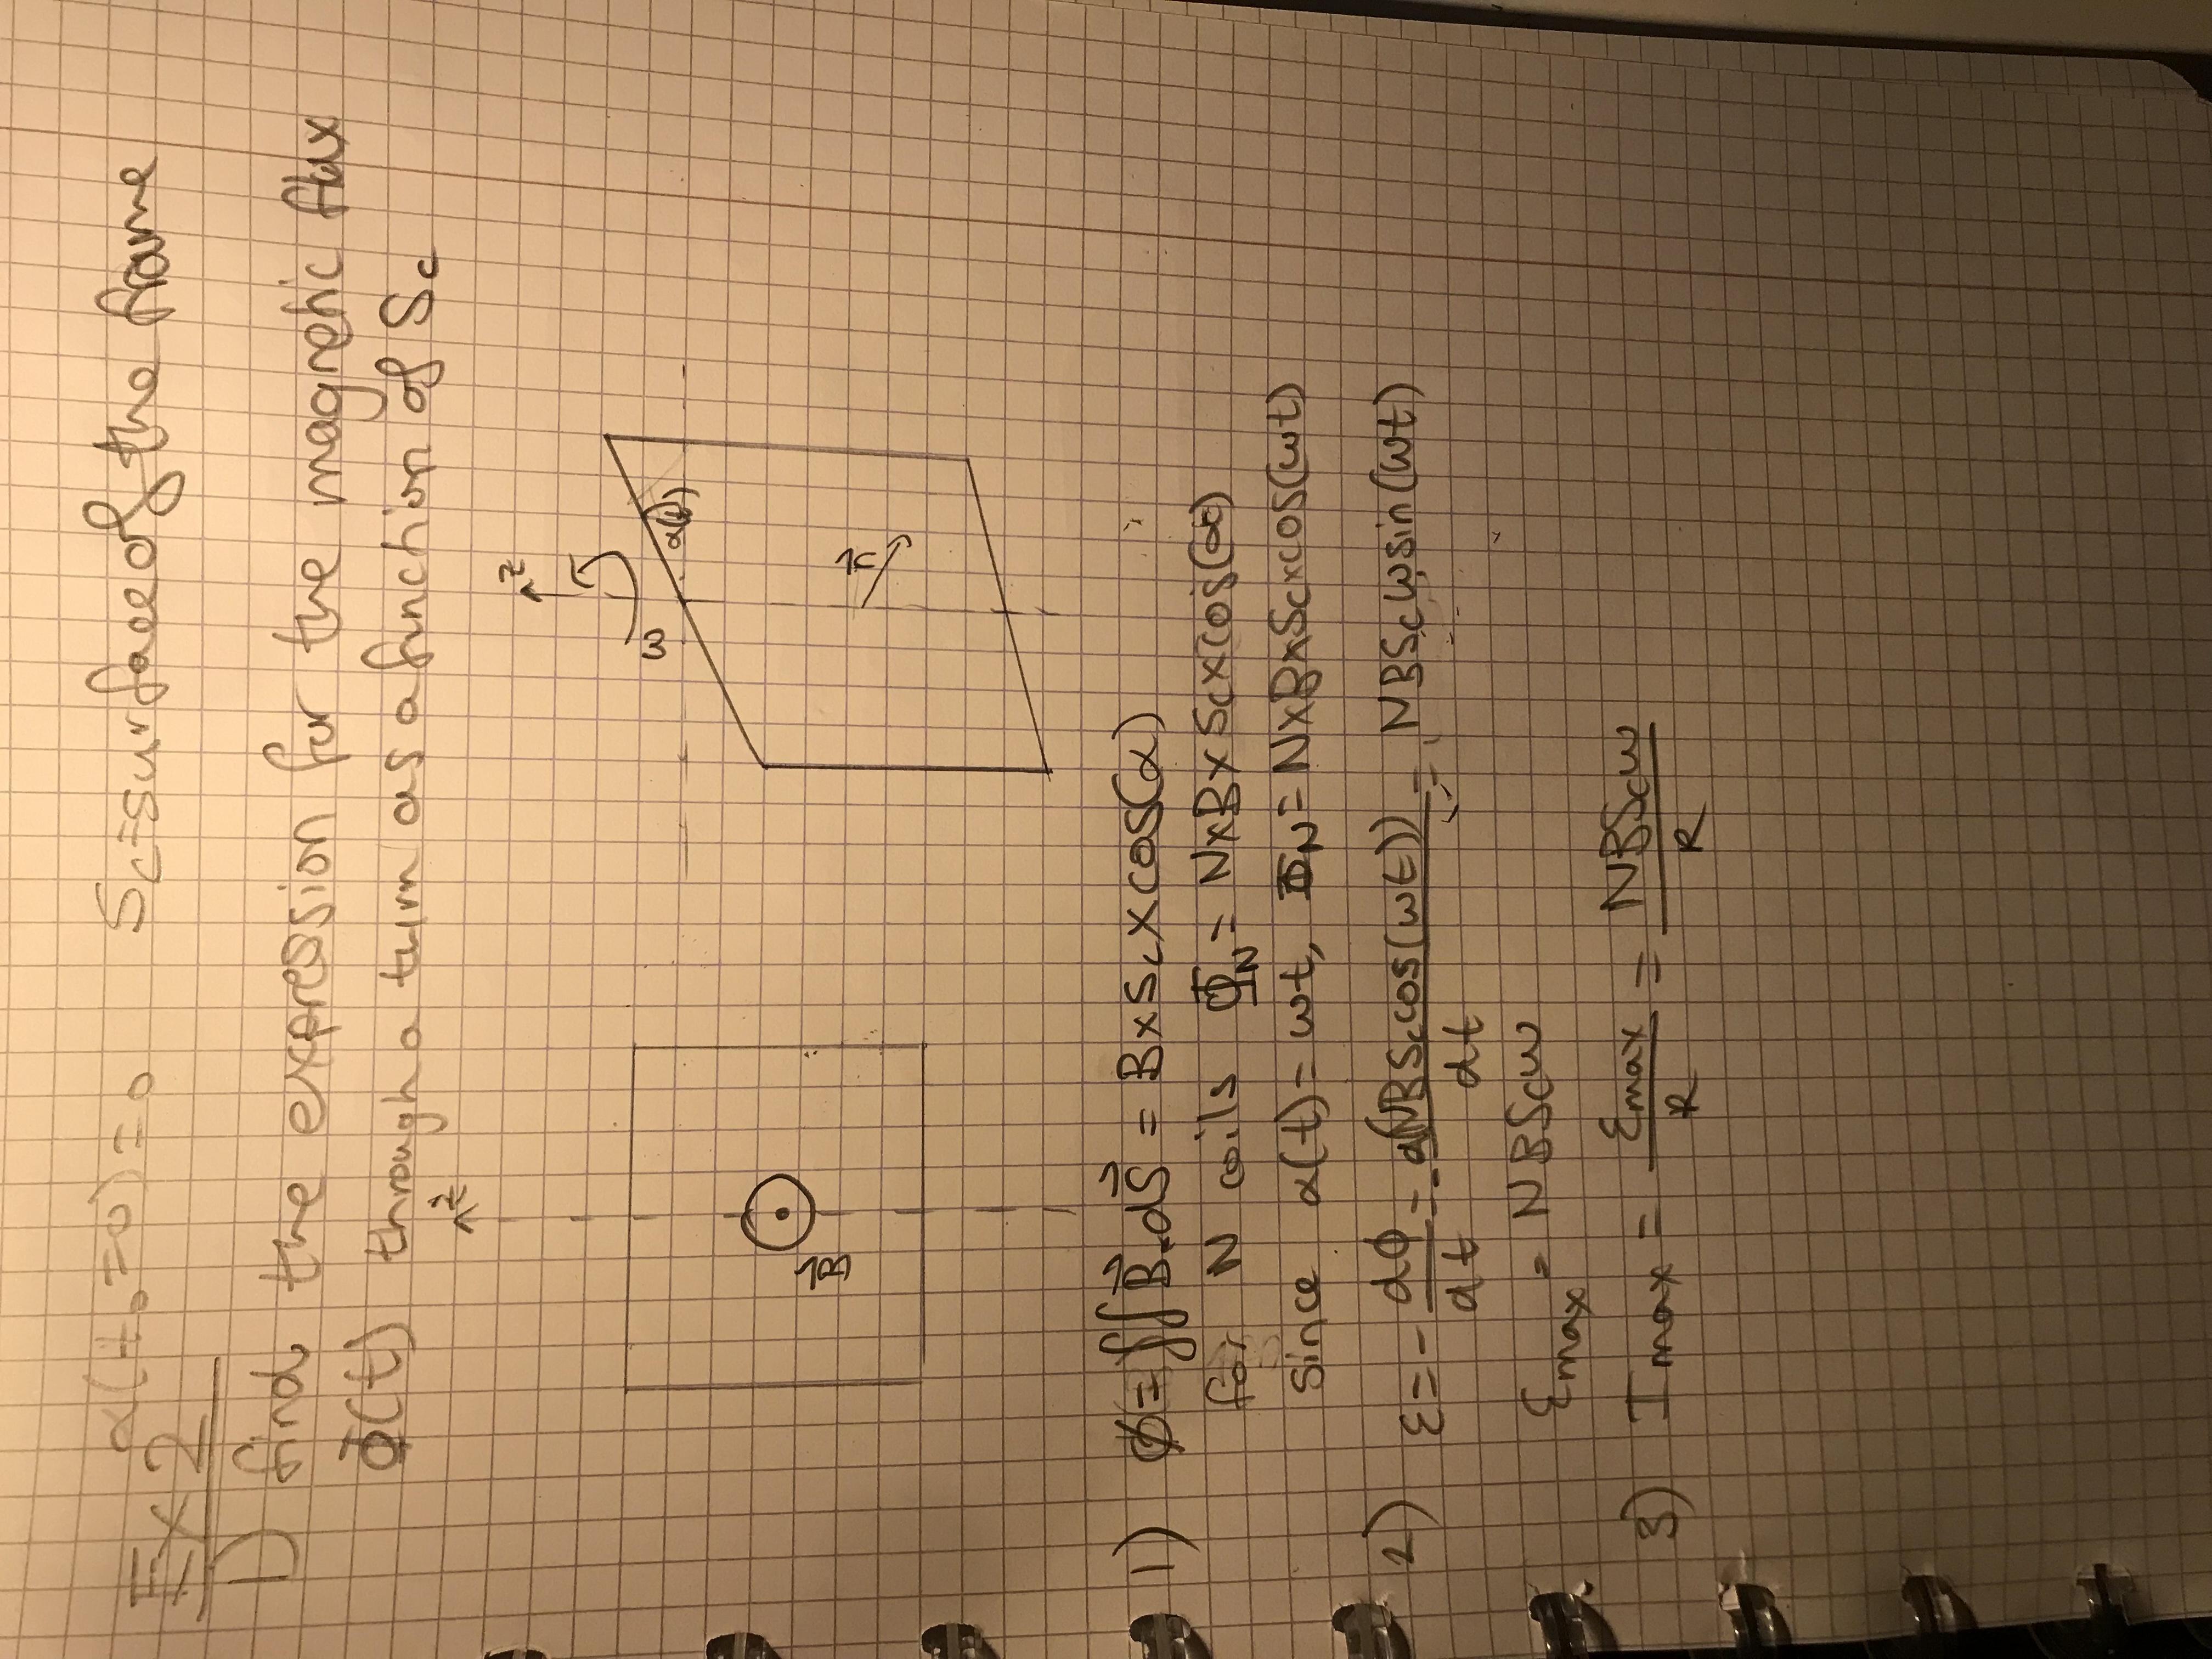 α(t₀=0)=0 Sc=surface of the frame
Ex 2
1) find the expression for the magnetic flux
Φ(t) through a turn as a function of Sc
z
z
ω
α(t)
B
1) ϕ=∬B⃗.dS⃗ = B×Sc×cos(α)
for N coils Φ_N = N×B×Sc×cos(α)
since α(t)= ωt, Φ_N= N×B×Sc×cos(ωt)
2) ε=-dϕ/dt=-d(NBSc cos(ωt))/dt = NBSc ω sin(ωt)
ε max = NBScω
3) I max = ε max/R = NBScω/R